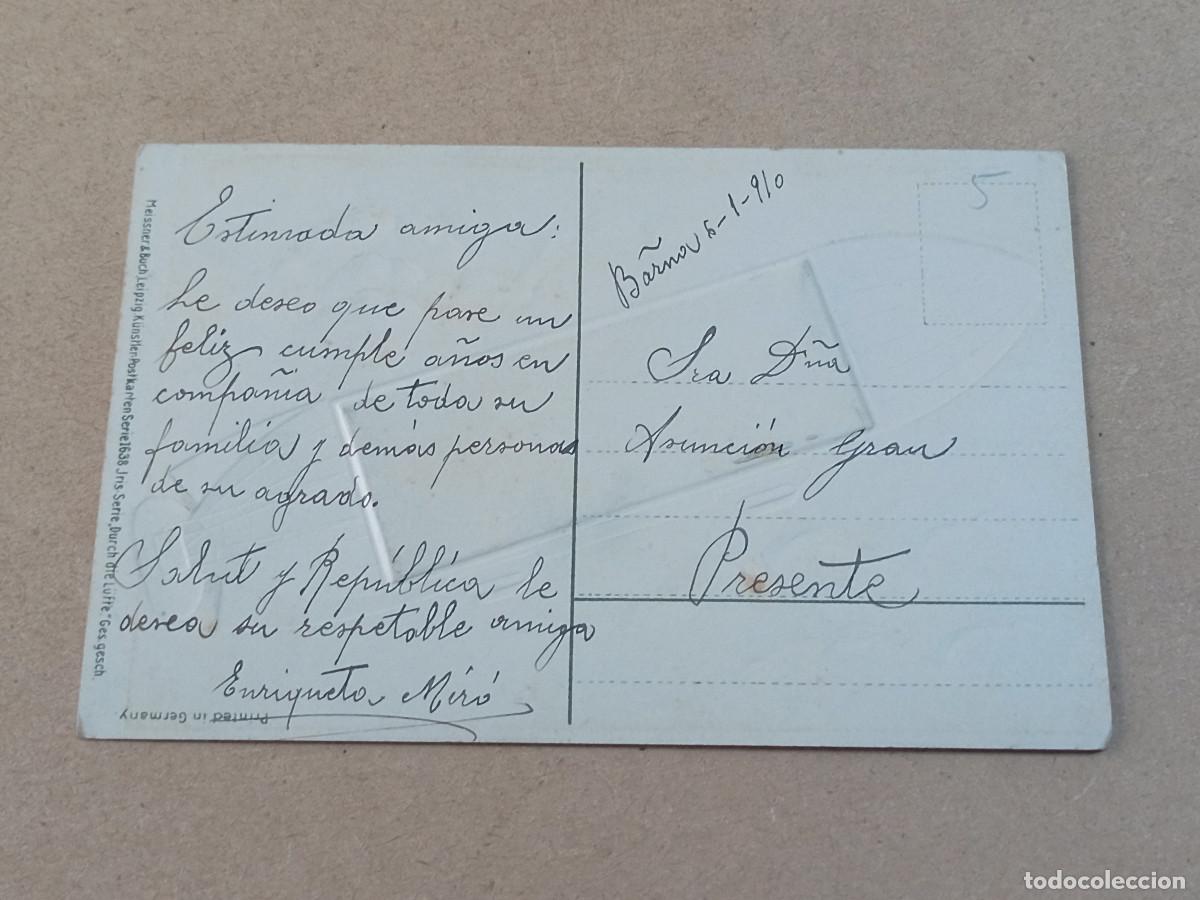 Estimada amiga:
Le deseo que pase un
feliz cumple años en
compañia de toda su
familia y demás personas
de su agrado.
Salut y República le
desea su respetable amiga
Enriqueta Miró
Barna 5-1-910
5
Sra Dña
Asunción Grau
Presente
Meissner & Buch, Leipzig. Künstler-Postkarten Serie 1638. Iris-Serie „Durch die Lüfte." Ges. gesch.
Printed in Germany
todocoleccion